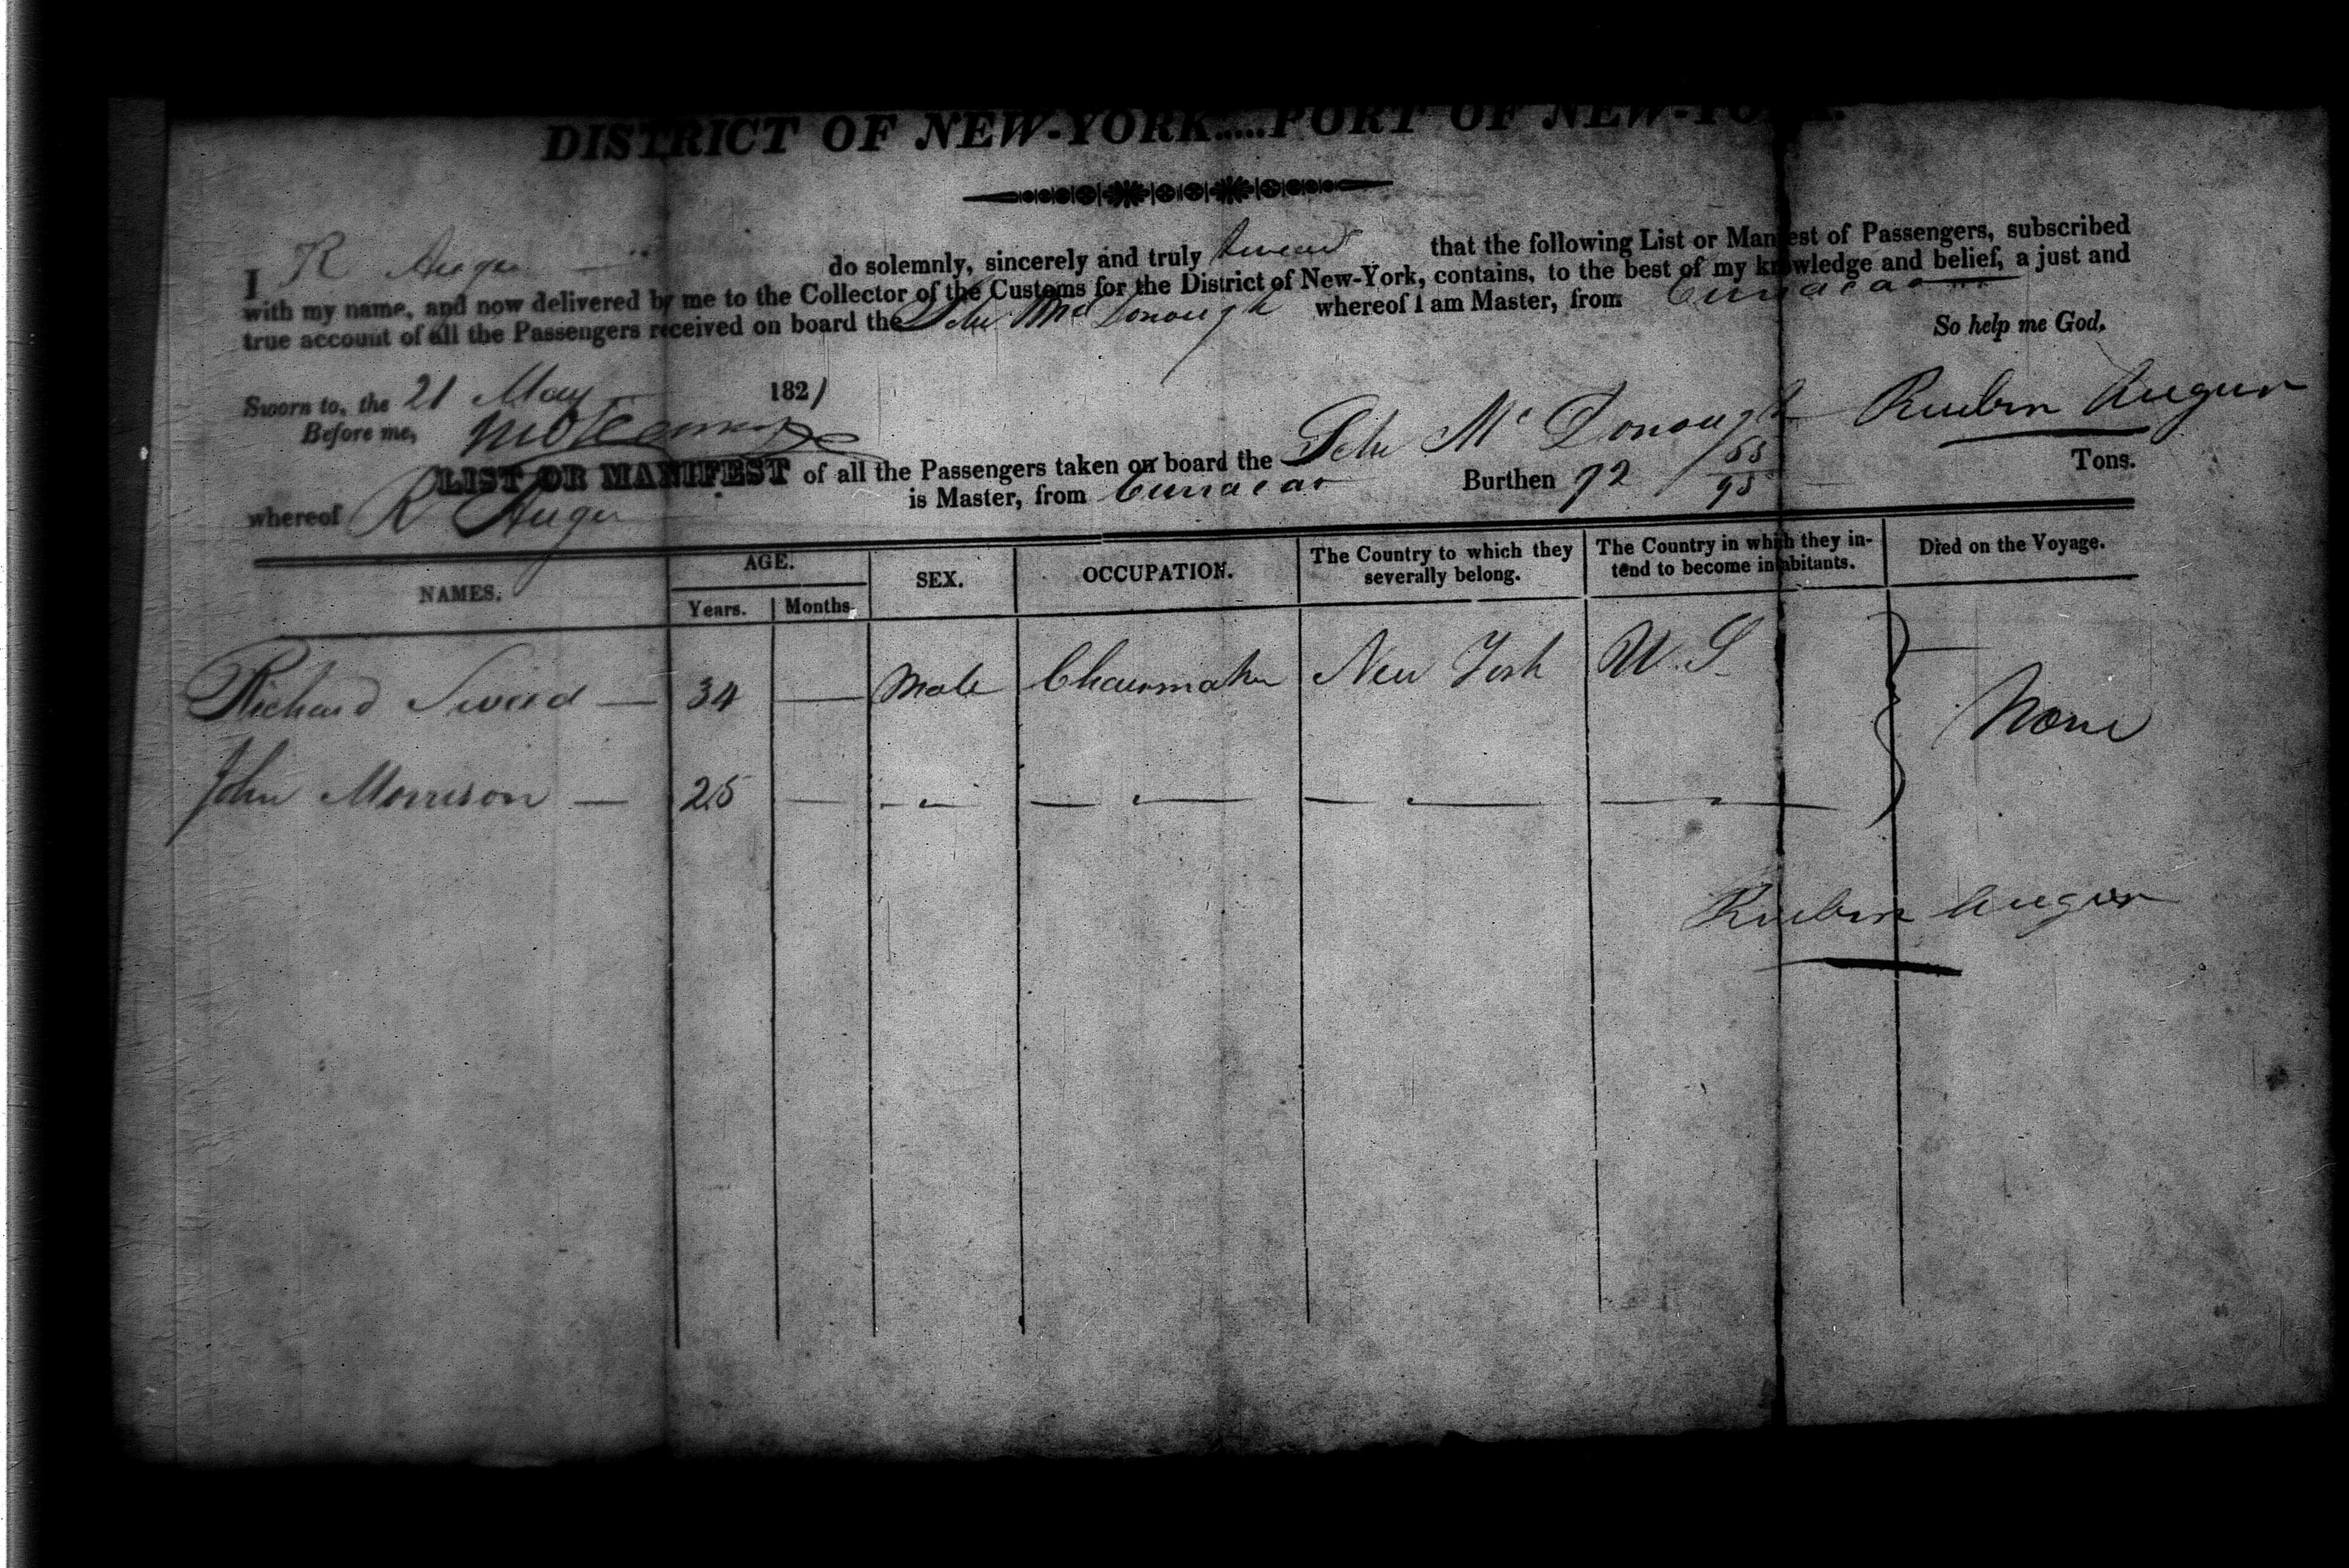 DISTRICT OF NEW-YORK.....PORT OF NEW-YORK.
I R Augur do solemnly, sincerely and truly swear that the following List or Manifest of Passengers, subscribed
with my name, and now delivered by me to the Collector of the Customs for the District of New-York, contains, to the best of my knowledge and belief, a just and
true account of all the Passengers received on board the Schr McDonough whereof I am Master, from Curracao
So help me God,
Sworn to, the 21 May 1821
Before me,
Reubin Augur
LIST OR MANIFEST of all the Passengers taken on board the Schr Mc Donough
whereof R Augur is Master, from Curracao Burthen 72 /95 Tons.
NAMES. AGE. SEX. OCCUPATION. The Country to which they severally belong. The Country in which they intend to become inhabitants. Died on the Voyage.
Years. Months.
Richard Sweed — 34 — Male Chairmaker New York U. S. None
John Morrison — 25 — — — — —
Reubin Augur